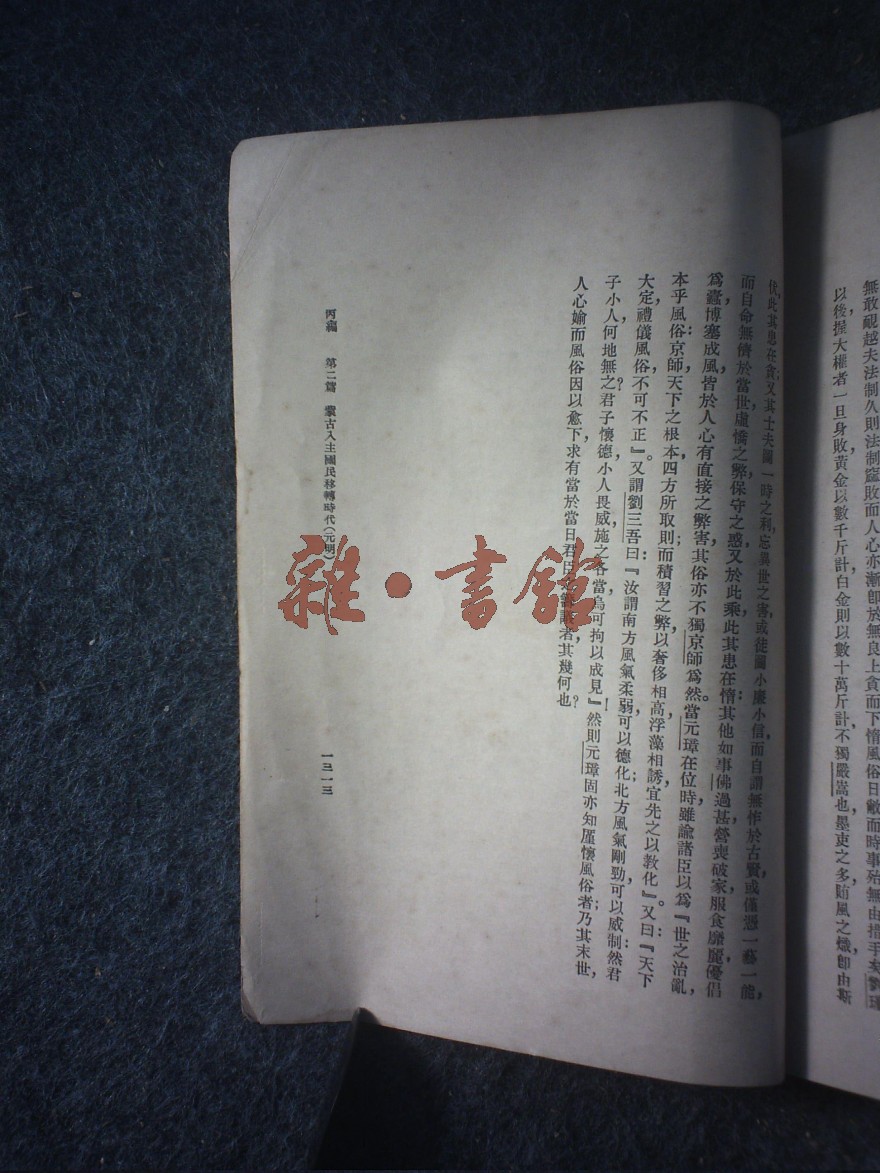 無敢覬越夫法制久則法制窳敗而人心亦漸卽於無良上貪而下惰風俗日敝而時事殆無由措手矣
以後握大權者一旦身敗黃金以數千斤計白金則以數十萬斤計不獨嚴嵩也墨吏之多賄風之熾卽由斯
伏，此其患在貪；又其士夫圖一時之利，忘異世之害，或徒圖小廉小信，而自謂無怍於古賢，或僅憑一藝一能，
而自命無儕於當世，虛憍之弊，保守之惑，又於此乘，此其患在惰；其他如事佛過甚，營喪破家，服食靡麗，優倡
爲蠹，博塞成風，皆於人心有直接之弊害，其俗亦不獨京師爲然。當元璋在位時，雖諭諸臣以爲：『世之治亂，
本乎風俗；京師天下之根本，四方所取則，而積習之弊，以奢侈相高，浮藻相誘，宜先之以敦化』。又曰：『天下
大定，禮儀風俗，不可不正』。又謂劉三吾曰：『汝謂南方風氣柔弱，可以德化；北方風氣剛勁，可以威制；然君
子小人，何地無之？君子懷德，小人畏威，施之各當，烏可拘以成見』！然則元璋固亦知厪懷風俗者；乃其末世，
人心媮而風俗因以愈下，求有當於當日君臣之者，其幾何也？
丙編 第二篇 蒙古入主國民移轉時代（元明）
一三一三
雜·書館